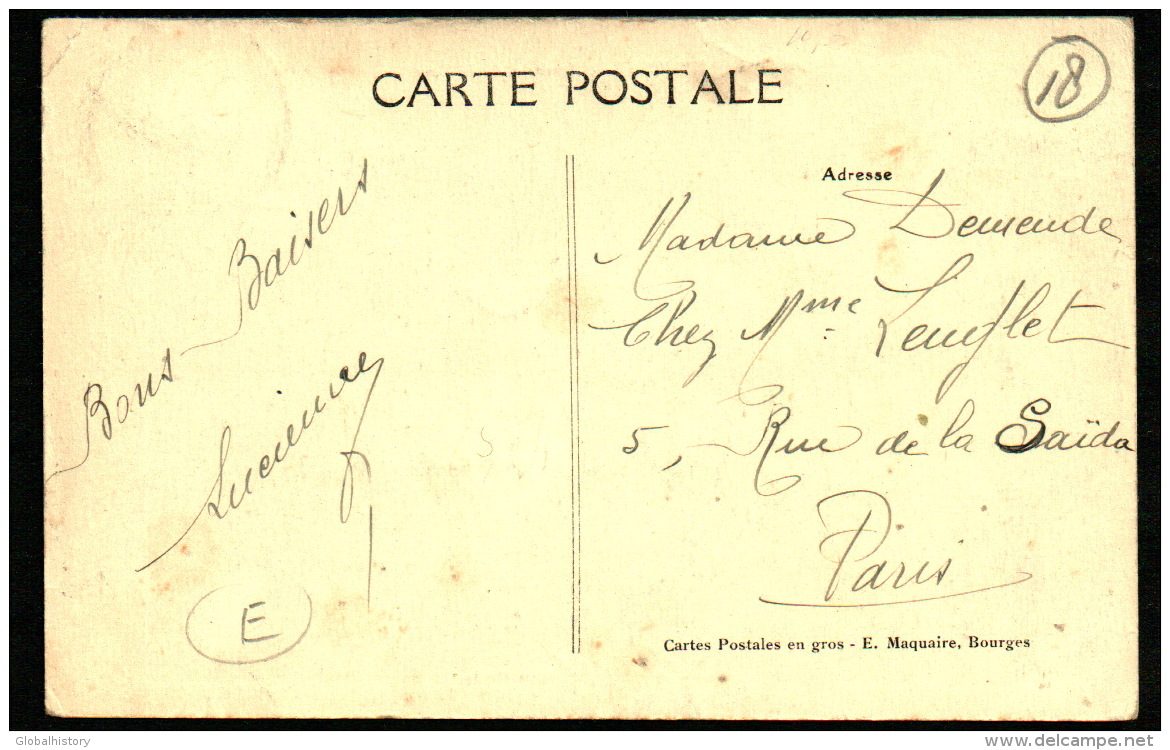 CARTE POSTALE
18
Bons Baisers
Lucienne
E
Adresse
Madame Demende
Chez Mme Lenglet
5, Rue de la Saïda
Paris
Cartes Postales en gros - E. Maquaire, Bourges
Globalhistory
www.delcampe.net